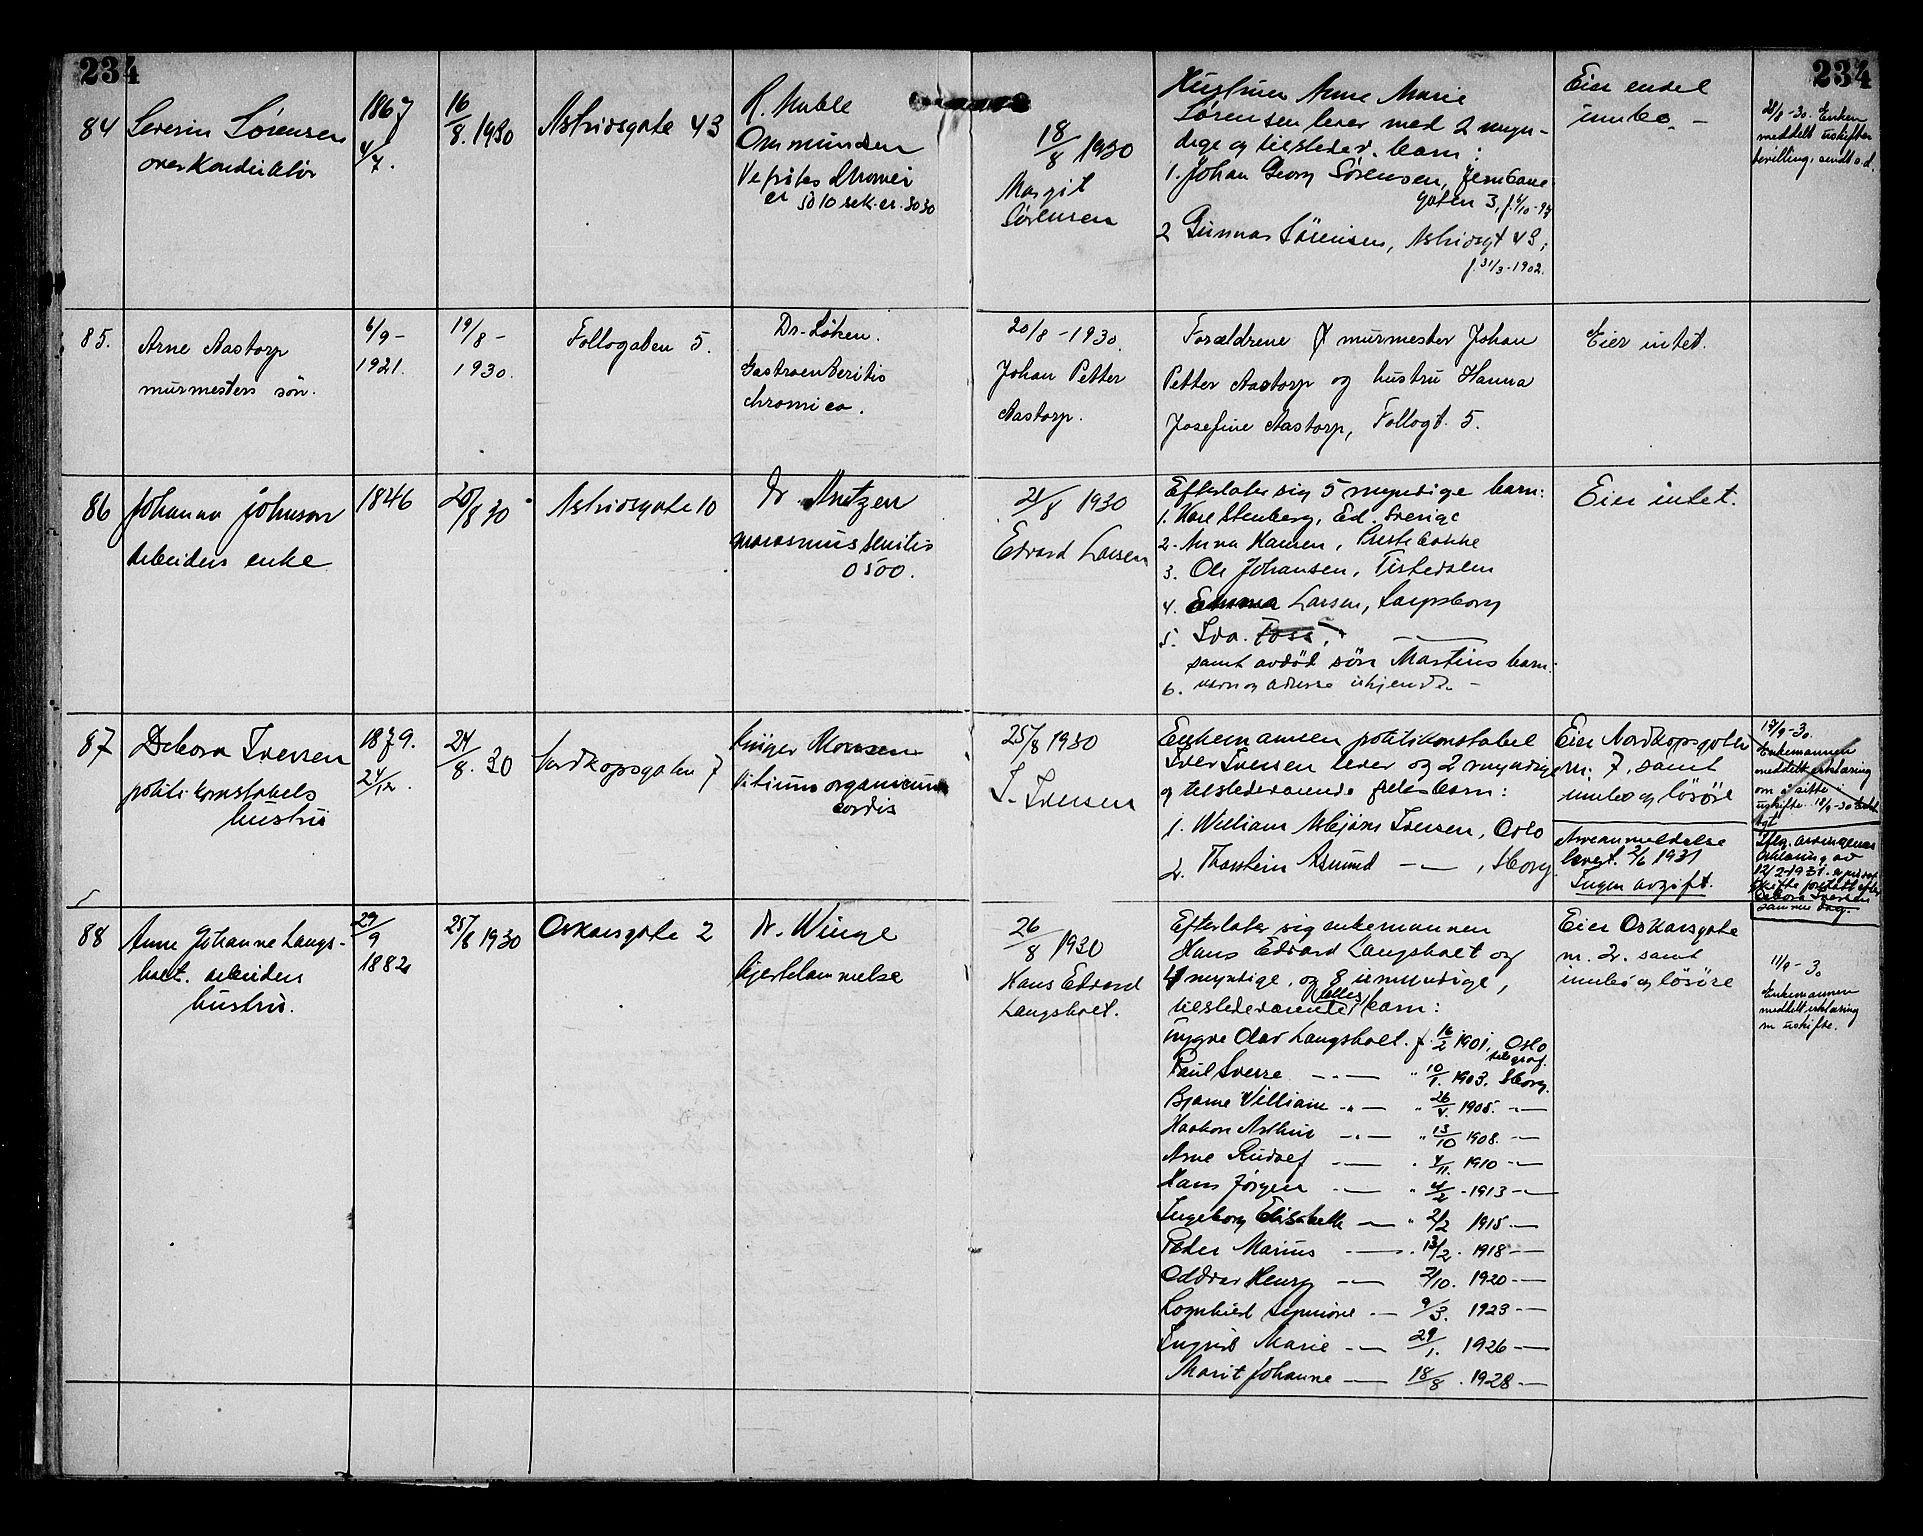 234
234
84
Severin Sørensen
overkonduktør
1867
4/7.
16/8. 1930
Astridsgate 43
Ommundsen
18/8 1930
Margit
Sørensen
Hustruen Anne Marie
Sørensen lever med 2 myn-
dige og tilstedev. barn:
1. Johan Georg Sørensen, Jernbane
gaten 3, f. 4/10-97
2 Gunnar Sørensen, Astridsgt 43,
f. 31/3-1902.
Eier endel
innbo. -
21/8-30. Enken
meddelt uskifte
bevilling, sendt s.d.
85.
Arne Aastorp
murmesters søn.
6/9-
1921.
19/8-
1930.
Follogaten 5.
Dr. Løken.
Gastroenteritis
chronica.
20/8-1930.
Johan Petter
Aastorp.
Forældrene murmester Johan
Petter Aastorp og hustru Hanna
Josefine Aastorp, Follogt. 5.
Eier intet.
86
Johanna Johnson
Arbeiders enke
1846
20/8 30
Astridsgate 10
Dr. Arntzen
marasmus senilis
0500.
21/8 1930
Edvard Larsen
Efterlater sig 5 myndige barn:
1. Stenberg, Ed. Sverige
2. Anna Hansen, Prestebakke
3. Ole Johansen, Tistedalen
4. Emma Larsen, Sarpsborg
5. Ida. Foss,
samt avdød søn Martins barn.
6. navn og adresse ukjendt. -
Eier intet.
87
Debora Iversen
politikonstabels
hustru
1879.
24/12.
24/8. 30
Nordkapsgaten 7
Monsen
Vitium organicum
cordis
25/8 1930
I. Iversen
Enkemannen politikonstabel
Iver Iversen lever og 2 myndige
og tilstedeværende fellesbarn:
1. William Asbjørn Iversen, Oslo
2. Thorstein Asmund — " — , Sborg.
Eier Nordkapsgaten
nr. 7, samt
innbo og løsøre
Arveanmeldelse
levert. 2/6 1931
Ingen avgift.
17/9-30.
Enkemannen
meddelt erklæring
om å sitte i
uskifte.
Iflg. arvingenes
erklæring av
12/2-1931. er privat
skifte foretatt efter
Debora Iversen
samme dag.
88
Anne Johanne Langs-
holt. arbeiders
hustru.
29/9
1882
25/8 1930
Oskarsgate 2
Dr. Winge
hjertelammelse
26/8 1930
Hans Edvard
Langsholt.
Efterlater sig enkemannen
Hans Edvard Langsholt og
4 myndige, og 8 umyndige,
tilstedeværende felles barn:
Trygve Olav Langsholt. f. 16/2 1901, Oslo
telegraf.
Paul Sverre — " — " 10/1. 1903. Sborg.
Bjarne William — " — " 26/5. 1905. — " —
Haakon Arthur — " — " 13/10 1908. — " —
Arne Rudolf — " — " 4/11. 1910 — " —
Hans Jørgen — " — " 4/2 - 1913 — " —
Ingeborg Elisabeth — " — " 2/2 1915 — " —
Peder Marius — " — " 13/2. 1918 — " —
Oddvar Henry — " — 2/10. 1920 — " —
Sigmore — " — 9/3. 1923 — " —
Ingrid Marie — " — 29/1. 1926 — " —
Marit Johanne — " — 18/8. 1928 — " —
Eier Oskarsgate
nr. 2. samt
innbo og løsøre
11/9-30
Enkemannen
meddelt erklæring
m uskifte.